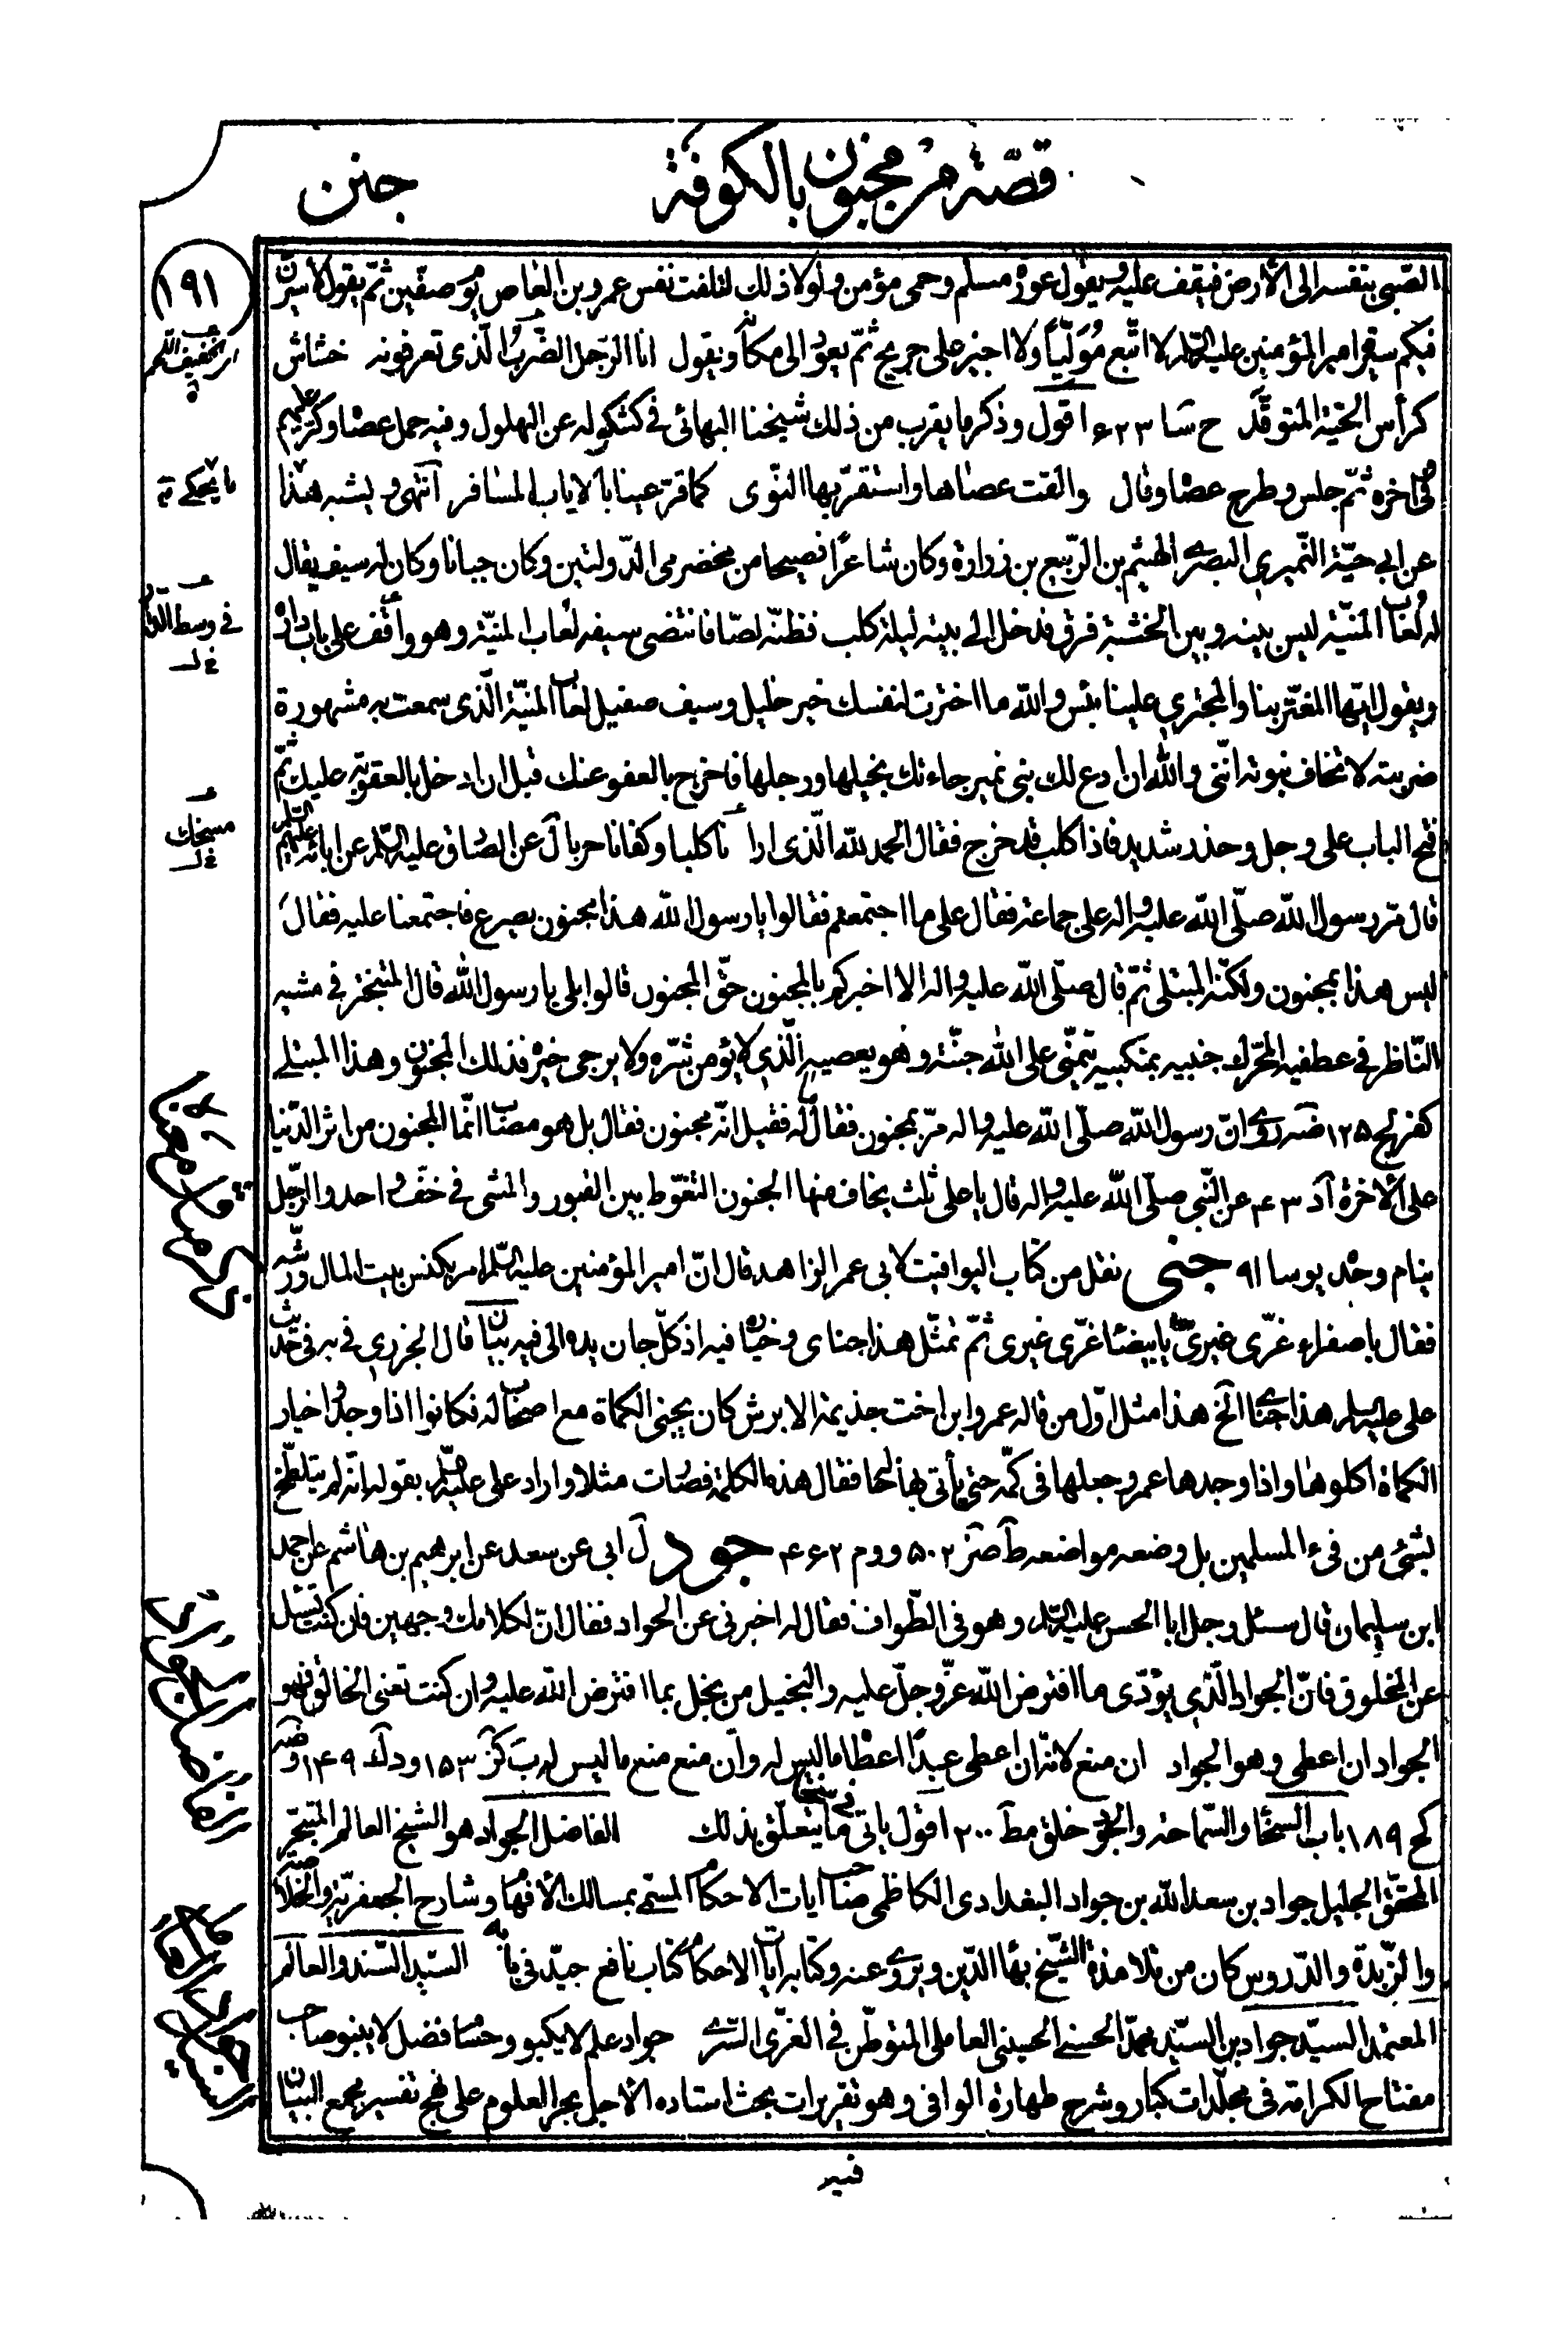 قصّة مرّ مجنون بالكوفة
جنن
١٩١
الصّبى بنفسه الى الأرض فيقف عليه ويقول عورة مسلم وحمى مؤمن ولولا ذلك لتلفت نفس عمرو بن العاص يوم صفّين ثمّ يقول لأسيرنّ
فيكم سيرة امير المؤمنين عليه السّلام لا اتّبع مُوَلّياً ولا اجيز على جريح ثمّ يعود الى مكانه ويقول انا الرّجل الضّربُ الّذى تعرفونه خشاش
كرأس الحيّة المتوقّد ح شا ٦٢٣ اقول وذكر ما يقرب من ذلك شيخنا البهائى فى كشكوله عن البهلول وفيه حمل عصا وكرّ عليهم
الى اخره ثمّ جلس وطرح عصا وقال والقت عصاها واستقرّ بها النّوى كما قرّ عينا بالاياب المسافر انتهى ويشبه هذا
عن ابى حيّة النّميري البصرى الهيثم بن الرّبيع بن زرارة وكان شاعرًا فصيحا من مخضرمى الدّولتين وكان جبانا وكان له سيف يقال
له لُعاب المنيّة ليس بينه وبين الخشبة فرق فدخل الى بيته ليلة كلب فظنّه لصّا فانتضى سيفه لعاب المنيّة وهو واقف على باب داره
ويقول ايّها المغترّ بنا والمجترى علينا بئس والله ما اخترت لنفسك خير قليل وسيف صقيل لعاب المنيّة الّذى سمعت به مشهورة
ضربته لا تخاف نبوته انّنى والله ان ادع لك بنى نمير جاءتك بخيلها ورجلها فاخرج بالعفو عنك قبل ان ادخل بالعقوبة عليك ثمّ
فتح الباب على وجل وحذر شديد فاذا كلب قد خرج فقال الحمد لله الّذى ارانا كلبا وكفانا حربا ل عن الصّادق عليه السّلام عن ابائه عليهم السّلام
قال مرّ رسول الله صلّى الله عليه واله على جماعة فقال على ما اجتمعتم فقالوا يا رسول الله هذا مجنون يصرع فاجتمعنا عليه فقال
ليس هذا بمجنون ولكنّه المبتلى ثمّ قال صلّى الله عليه واله الا اخبركم بالمجنون حقّ المجنون قالوا بلى يا رسول الله قال المتبختر فى مشيه
النّاظر فى عطفيه المحرّك جنبيه بمنكبيه يتمنّى على الله جنّته وهو يعصيه الّذى لا يؤمن شرّه ولا يرجى خيره فذلك المجنون وهذا المبتلى
كفر يج ١٢٥ ضه روى انّ رسول الله صلّى الله عليه واله مرّ بمجنون فقال ماله فقيل انّه مجنون فقال بل هو مصاب انّما المجنون من اثر الدّنيا
على الأخرة آد ٤٣ عن النّبى صلّى الله عليه واله قال يا على ثلث يخاف منها الجنون التغوّط بين القبور والمشى فى خفّ واحد والرّجل
ينام وحده يو سا ٩١ جنى نقل من كتاب اليواقيت لابى عمر الزاهد قال انّ امير المؤمنين عليه السّلام امر بكنس بيت المال ورشّه
فقال يا صفراء غرّى غيرى يا بيضاء غرّى غيرى ثمّ تمثّل هذا جناى وخياره فيه اذ كلّ جان يده الى فيه بيان قال الجزري فى يه فى حديث
على عليه السلام هذا جناى الخ هذا مثل اوّل من قاله عمرو ابن اخت جذيمة الابرش كان يجنى الكماة مع اصحاب له فكانوا اذا وجدوا خيار
الكماة اكلوها واذا وجدها عمرو جعلها فى كمّه حتى يأتى بها خاله فقال هذه الكلمة فصارت مثلا واراد على عليه السّلام بقوله انّه لم يتلطّخ
بشئ من فىء المسلمين بل وضعه مواضعه ط صز ٥٠٢ و وم ٤٦٢ جود ل ابى عن سعد عن ابرهيم بن هاشم عن احمد
ابن سليمان قال سئل رجل ابا الحسن عليه السّلام وهو فى الطّواف فقال له اخبرنى عن الجواد فقال انّ لكلامك وجهين فان كنت تسئل
عن المخلوق فانّ الجواد الّذى يؤدّى ما افترض الله عزّ وجلّ عليه والبخيل من بخل بما افترض الله عليه وان كنت تعنى الخالق فهو
الجواد ان اعطى وهو الجواد ان منع لانّه ان اعطى عبدًا اعطاه ما ليس له وان منع منع ما ليس له ب كز ١٥٣ و د ك ١٤٩ و ضه
كح ١٨٩ باب السخاء والسّماحة والجود خلق مط ٢٠٠ اقول ياتى فى سخا ما يتعلّق بذلك الفاضل الجواد هو الشيخ العالم المتبحّر
المحقّق الجليل جواد بن سعد الله بن جواد البغدادى الكاظمى صاحب ايات الاحكام المسمّى بمسالك الأفهام وشارح الجعفريّة والخلاصة
والزّبدة والدّروس كان من تلامذة الشّيخ بهاء الدّين ويروى عنه وكتابه ايات الاحكام كتاب نافع جيّد فى بابه السّيّد السّند والعالم
المعتمد السيّد جواد بن السيّد محمّد الحسنى الحسينى العاملى المتوطّن فى الغرّى السّرى جواد علم لا يكبو وحسام فضل لا ينبو صاحب
مفتاح الكرامة فى مجلّدات كبار وشرح طهارة الوافى وهو تقريرات بحث استاده الاجلّ بحر العلوم على نهج تفسير مجمع البيان
فيه